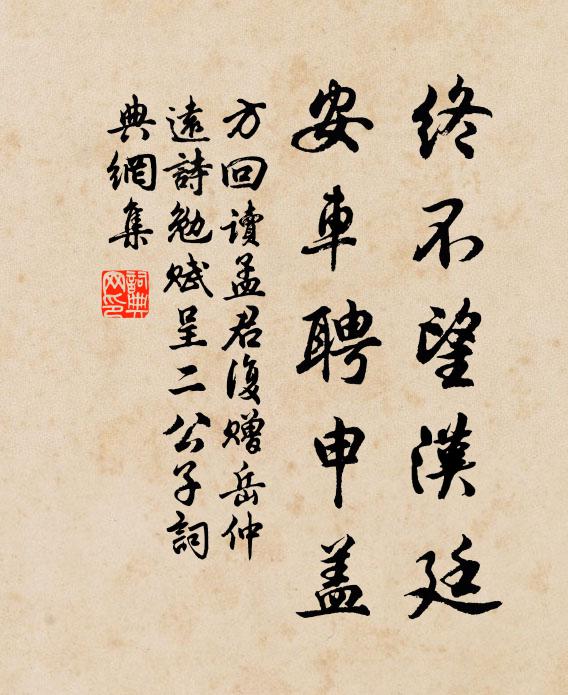 終不望漢廷
安車聘申盖
方回讀孟君復贈岳仲
遠詩勉賦呈二公子詞
典網集
詞典網印